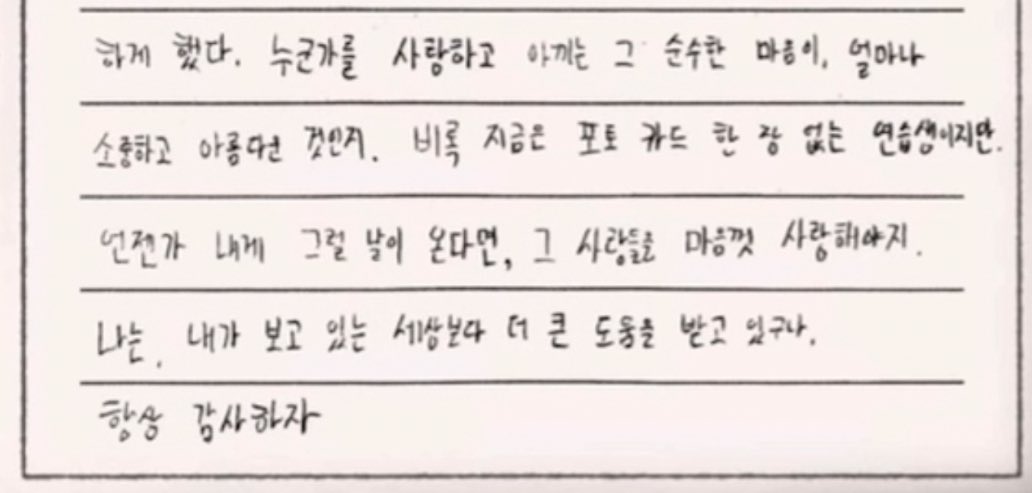 하게 했다. 누군가를 사랑하고 아끼는 그 순수한 마음이, 얼마나
소중하고 아름다운 것인지. 비록 지금은 포토 카드 한 장 없는 연습생이지만.
언젠가 내게 그럴 날이 온다면, 그 사람들을 마음껏 사랑해야지.
나는, 내가 보고 있는 세상보다 더 큰 도움을 받고 있구나.
항상 감사하자